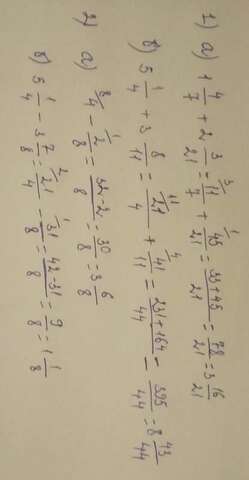 1) а) 1 4/7 + 2 3/21 = 11/7 ³ + 45/21 ¹ = (33+45)/21 = 78/21 = 3 16/21
б) 5 1/4 + 3 8/11 = 21/4 ¹¹ + 41/11 ⁴ = (231+164)/44 = 395/44 = 8 43/44
2) а) 8/4 - 2/8 ¹ = (32-2)/8 = 30/8 = 3 6/8
б) 5 1/4 - 3 7/8 = 21/4 ² - 31/8 ¹ = (42-31)/8 = 9/8 = 1 1/8